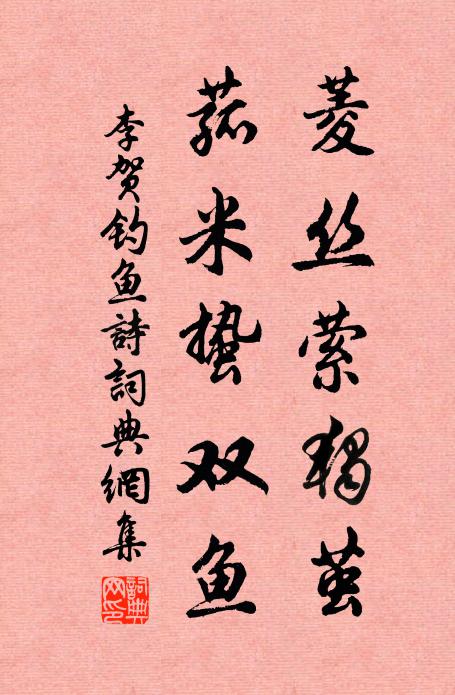 菱丝萦独茧
菰米蛰双鱼
李贺钓鱼詩詞典網集
詞典网印